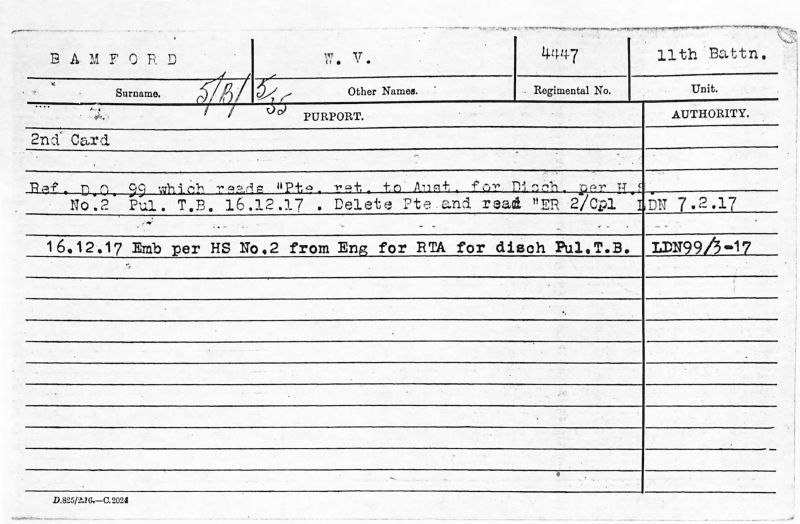 BAMFORD W. V. 4447 11th Battn.
Surname. 5/B/ 5/35 Other Names. Regimental No. Unit.
2 PURPORT. AUTHORITY.
2nd Card
Ref. D.O. 99 which reads "Pte. ret. to Aust. for Disch. per H.S.
No.2 Pul. T.B. 16.12.17 . Delete Pte and read "ER 2/Cpl LDN 7.2.17
16.12.17 Emb per HS No.2 from Eng for RTA for disch Pul.T.B. LDN99/3-17
D.825/2.16.—C.2024